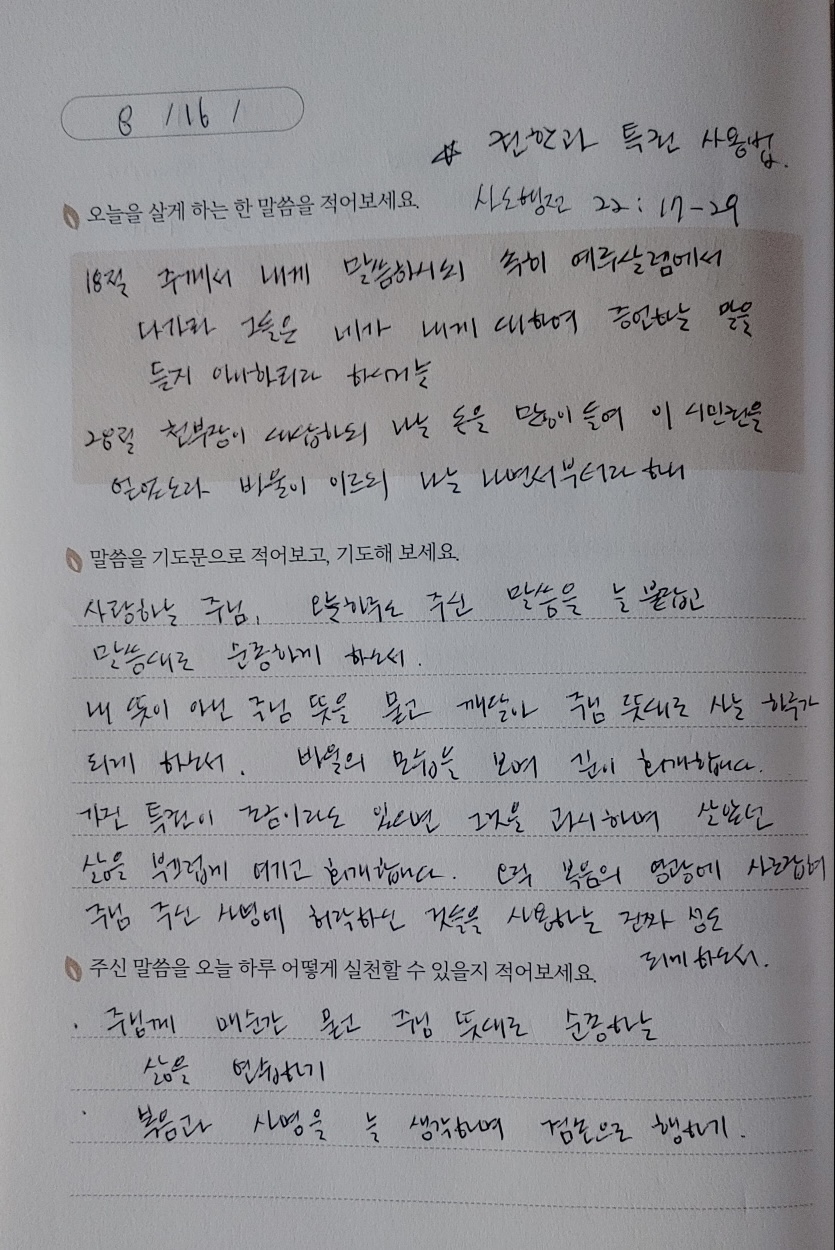 8 / 16 /
☆ 권한과 특권 사용법.
오늘을 살게 하는 한 말씀을 적어보세요.
사도행전 22 : 17-29
18절 주께서 내게 말씀하시되 속히 예루살렘에서
나가라 그들은 네가 내게 대하여 증언하는 말을
듣지 아니하리라 하시거늘
28절 천부장이 대답하되 나는 돈을 많이 들여 이 시민권을
얻었노라 바울이 이르되 나는 나면서부터라 하니
말씀을 기도문으로 적어보고, 기도해 보세요.
사랑하는 주님, 오늘하루도 주신 말씀을 늘 붙잡고
말씀대로 순종하게 하소서.
내 뜻이 아닌 주님 뜻을 묻고 깨달아 주님 뜻대로 사는 하루가
되게 하소서. 바울의 모습을 보며 깊이 회개합니다.
가진 특권이 조금이라도 있으면 그것을 과시하며 살았던
삶을 부끄럽게 여기고 회개합니다. 오직 복음의 영광에 사로잡혀
주님 주신 사명에 허락하신 것들을 사용하는 진짜 성도
되게 하소서.
주신 말씀을 오늘 하루 어떻게 실천할 수 있을지 적어보세요.
· 주님께 매순간 묻고 주님 뜻대로 순종하는
삶을 연습하기
· 복음과 사명을 늘 생각하며 겸손으로 행하기.